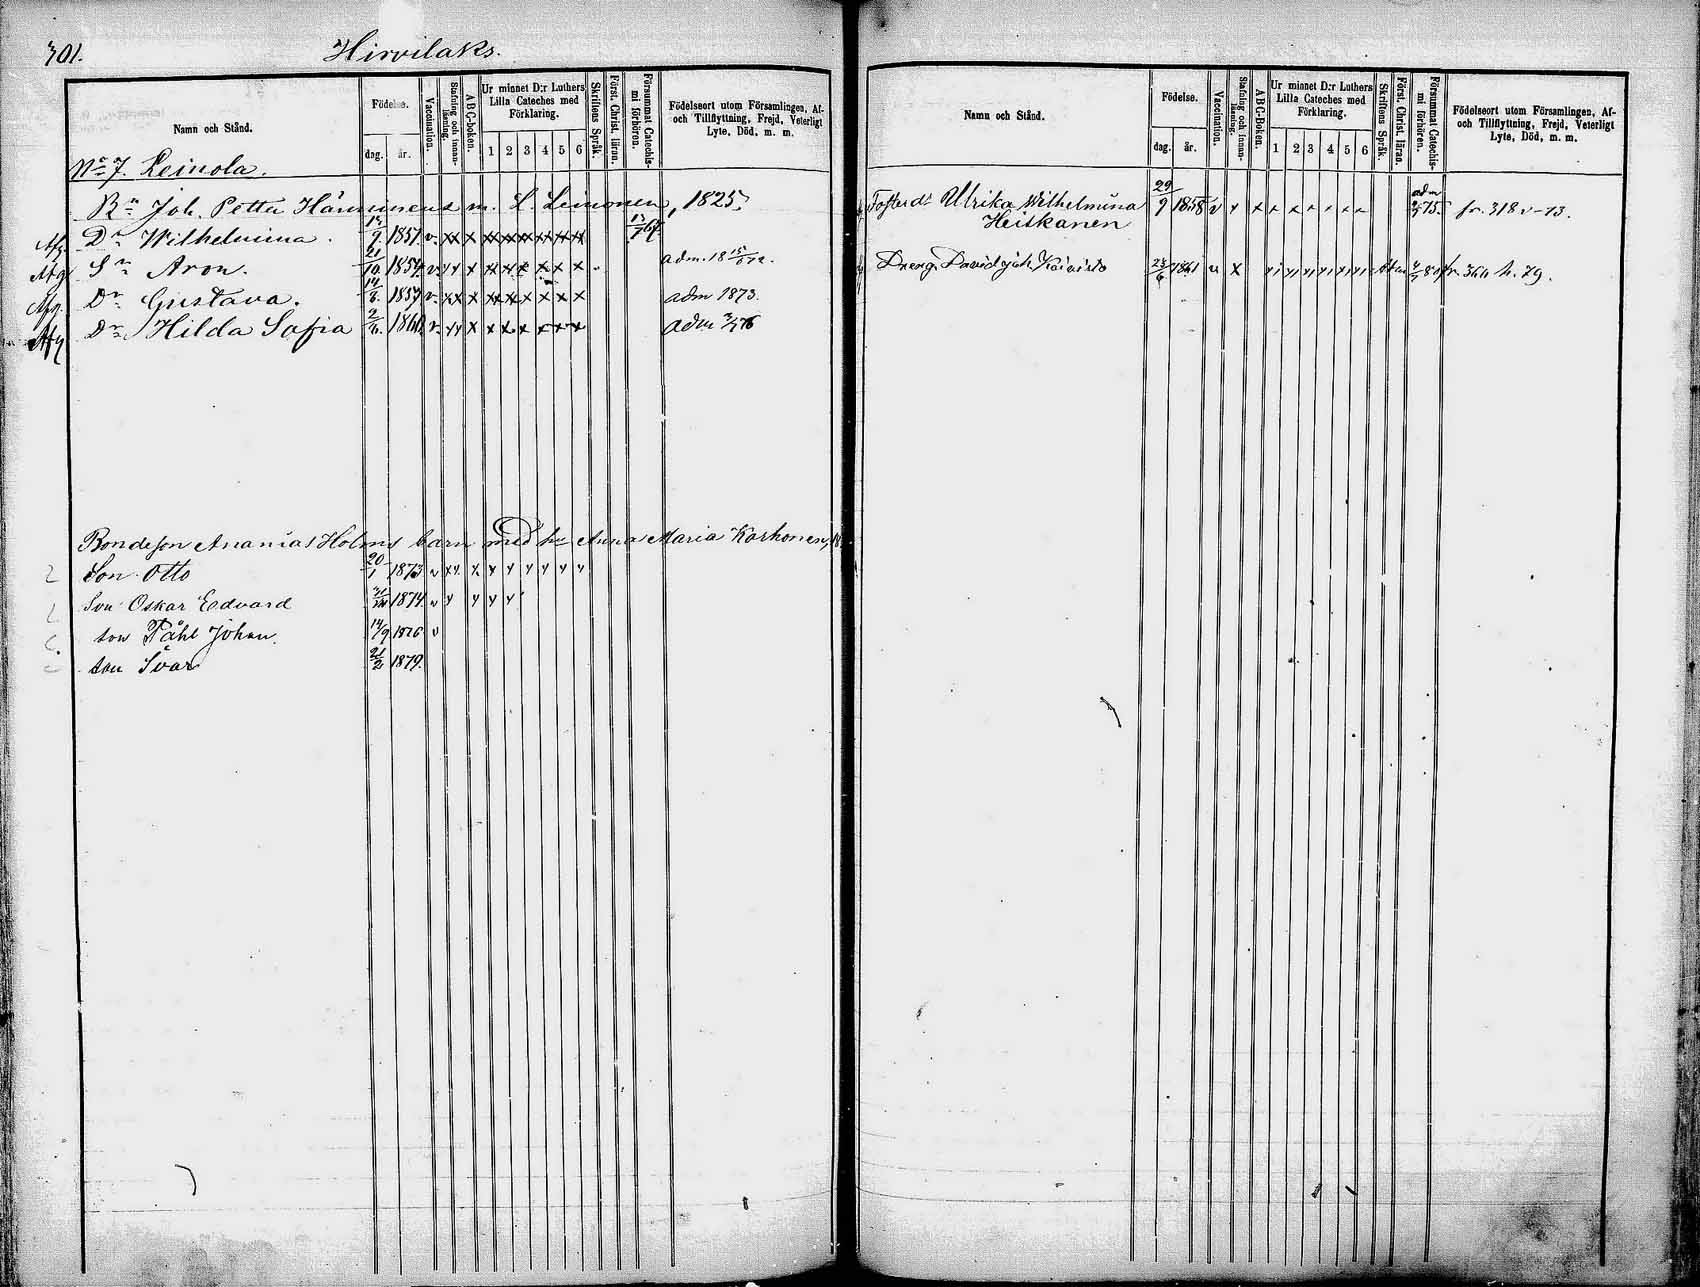 301.
Hirvilaks.
Namn och Stånd.
Födelse.
dag. år.
Vaccination.
Stafning och innanläsning.
ABC-boken.
Ur minnet D:r Luthers Lilla Cateches med Förklaring.
1 2 3 4 5 6
Skriftens Språk.
Först. Christ. läran.
Försummat Catechismi förhören.
Födelseort utom Församlingen, Af- och Tillflyttning, Frejd, Veterligt Lyte, Död, m. m.
No 7. Leinola.
Bn Joh. Petter Hänninens m. L. Leinonen, 1825.
Afg Dr Wilhelmina. 1851. v. xx x xx xx xx xx xx xx
Afg Sn Aron. 21/10 1854. v. x x x xx xx x x x x adm. 18 15/6 72.
Afg Dr Gustava. 14/8. 1857 v. xx x xx xx x x x x adm 1873.
Afg Dr Hilda Sofia 2/6. 1860. v. x x x x x x x x x adm 3/7 76
Bondeson Ananias Holms barn med h. Anna Maria Korhonen, 18
Son Otto 20/1 1873 v x x x x x x x x x
Son Oskar Edvard 1874. v x x x x
son Påhl Johan. 14/9 1876 v
son Ivar 21/2 1879.
Namn och Stånd.
Födelse.
dag. år.
Vaccination.
Stafning och innanläsning.
ABC-Boken.
Ur minnet D:r Luthers Lilla Cateches med Förklaring.
1 2 3 4 5 6
Skriftens Språk.
Först. Christ. läran.
Försummat Catechismi förhören.
Födelseort utom Församlingen, Af- och Tillflyttning, Frejd, Veterligt Lyte, Död, m. m.
Fosterdr Ulrika Wilhelmina 29/9 1858 v x x x x x x x x adm 75. fr. 318 v-73.
Heiskanen
Dreng David Joh Koivisto 23/6 1861 v x 80 fr. 364 h. 79.